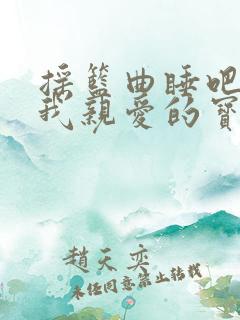 摇篮曲睡吧
我親愛的寶
趙天奕
未经同意禁止转载